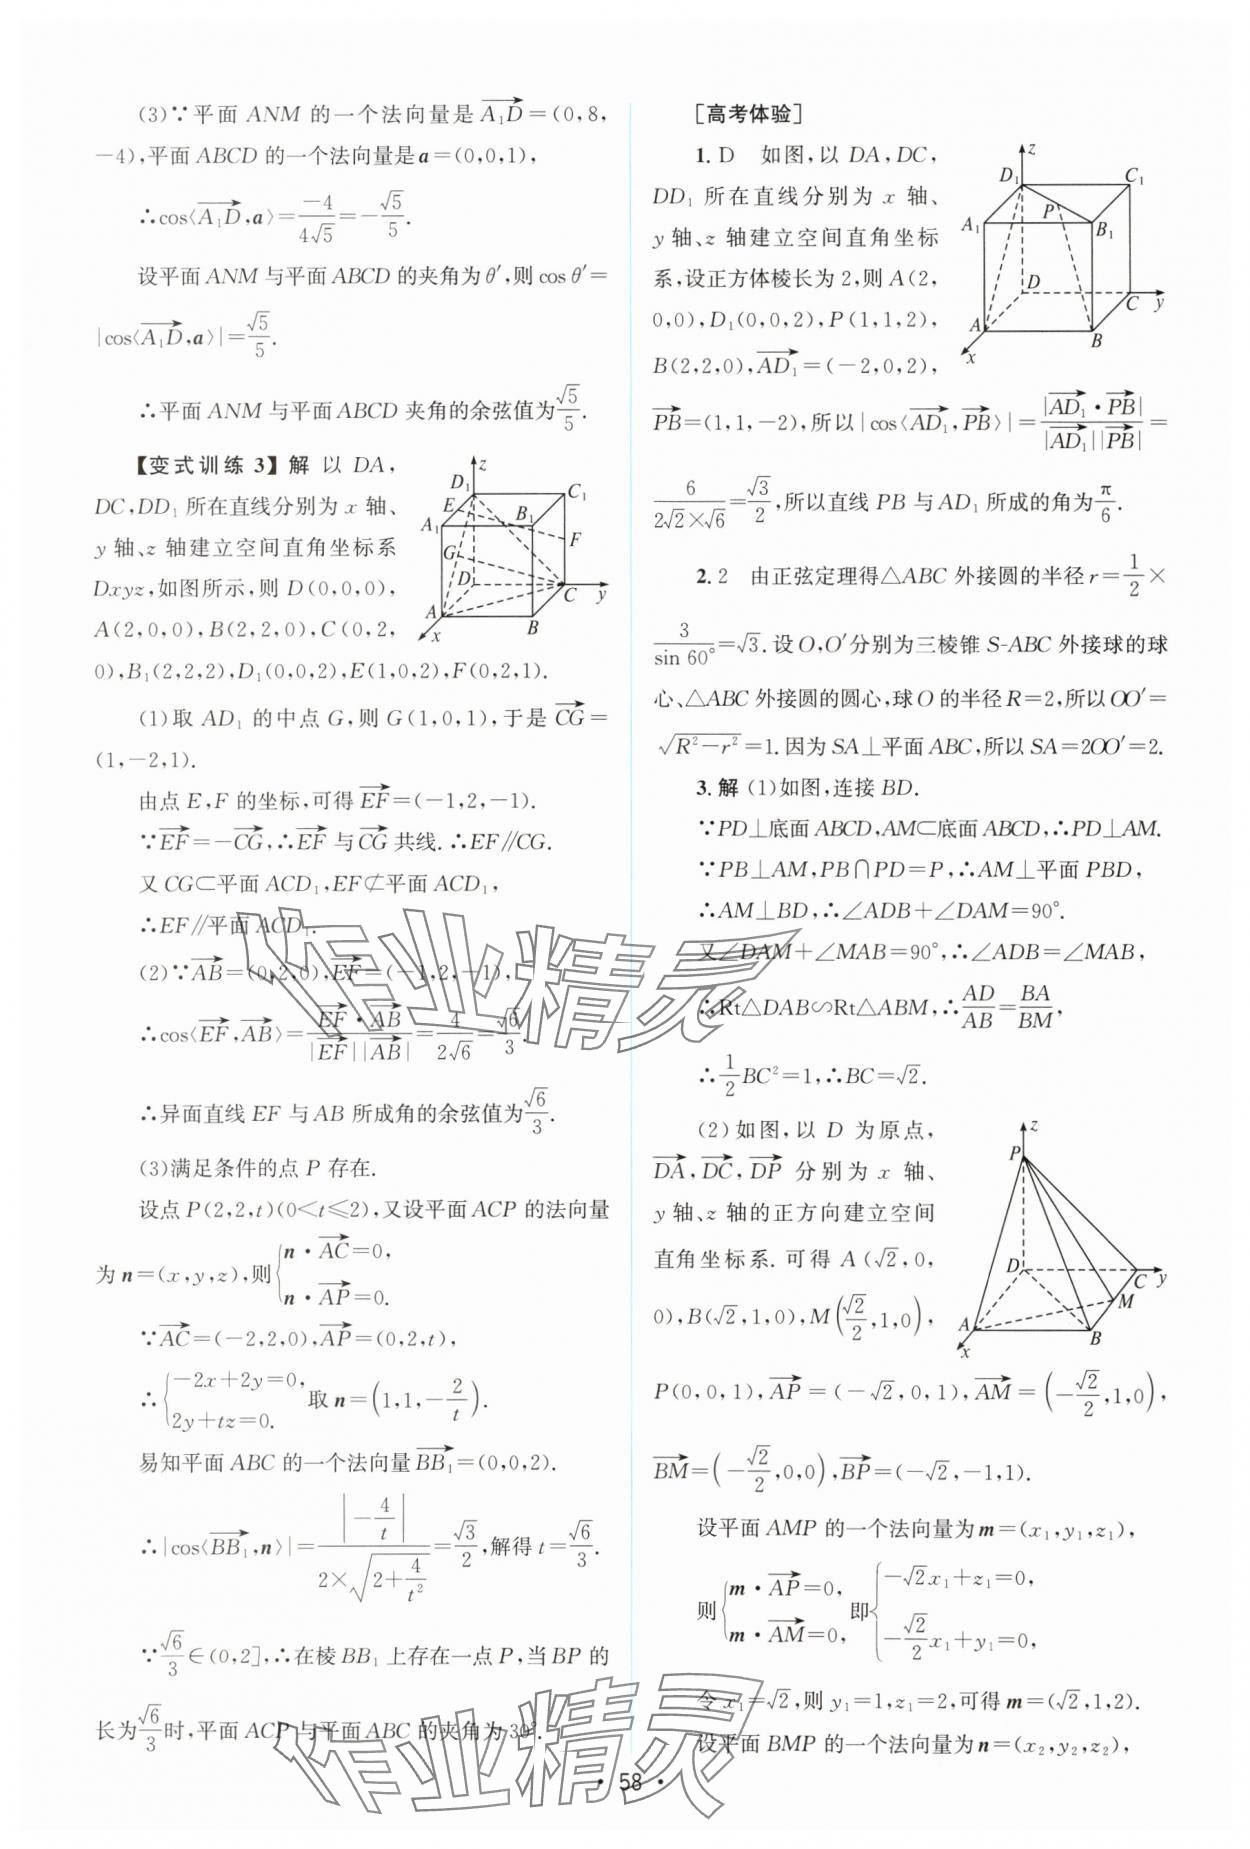 (3)∵平面 ANM 的一个法向量是 $\overrightarrow{A_1D}$=(0,8,
-4),平面 ABCD 的一个法向量是 a=(0,0,1),
∴cos⟨$\overrightarrow{A_1D}$,a⟩=$\frac{-4}{4\sqrt{5}}$=-$\frac{\sqrt{5}}{5}$.
设平面 ANM 与平面 ABCD 的夹角为 θ′,则 cos θ′=
|cos⟨$\overrightarrow{A_1D}$,a⟩|=$\frac{\sqrt{5}}{5}$.
∴平面 ANM 与平面 ABCD 夹角的余弦值为$\frac{\sqrt{5}}{5}$.
【变式训练 3】解 以 DA,
DC,DD₁ 所在直线分别为 x 轴、
y 轴、z 轴建立空间直角坐标系
Dxyz,如图所示,则 D(0,0,0),
A(2,0,0),B(2,2,0),C(0,2,
0),B₁(2,2,2),D₁(0,0,2),E(1,0,2),F(0,2,1).
z
D₁
C₁
E
A₁
B₁
F
G
D
C
y
A
B
x
(1)取 AD₁ 的中点 G,则 G(1,0,1),于是 $\overrightarrow{CG}$=
(1,-2,1).
由点 E,F 的坐标,可得 $\overrightarrow{EF}$=(-1,2,-1).
∵$\overrightarrow{EF}$=-$\overrightarrow{CG}$,∴$\overrightarrow{EF}$ 与 $\overrightarrow{CG}$ 共线.∴EF∥CG.
又 CG⊂平面 ACD₁,EF⊄平面 ACD₁,
∴EF∥平面 ACD₁.
(2)∵$\overrightarrow{AB}$=(0,2,0),$\overrightarrow{EF}$=(-1,2,-1),
∴cos⟨$\overrightarrow{EF}$,$\overrightarrow{AB}$⟩=$\frac{\overrightarrow{EF}·\overrightarrow{AB}}{|\overrightarrow{EF}||\overrightarrow{AB}|}$=$\frac{4}{2\sqrt{6}}$=$\frac{\sqrt{6}}{3}$.
∴异面直线 EF 与 AB 所成角的余弦值为$\frac{\sqrt{6}}{3}$.
(3)满足条件的点 P 存在.
设点 P(2,2,t)(0<t≤2),又设平面 ACP 的法向量
为 n=(x,y,z),则$\begin{cases}n·\overrightarrow{AC}=0,\\n·\overrightarrow{AP}=0.\end{cases}$
∵$\overrightarrow{AC}$=(-2,2,0),$\overrightarrow{AP}$=(0,2,t),
∴$\begin{cases}-2x+2y=0,\\2y+tz=0.\end{cases}$取 n=$\left(1,1,-\frac{2}{t}\right)$.
易知平面 ABC 的一个法向量 $\overrightarrow{BB_1}$=(0,0,2).
∴|cos⟨$\overrightarrow{BB_1}$,n⟩|=$\frac{\left|-\frac{4}{t}\right|}{2×\sqrt{2+\frac{4}{t^2}}}$=$\frac{\sqrt{3}}{2}$,解得 t=$\frac{\sqrt{6}}{3}$.
∵$\frac{\sqrt{6}}{3}$∈(0,2],∴在棱 BB₁ 上存在一点 P,当 BP 的
长为$\frac{\sqrt{6}}{3}$时,平面 ACP 与平面 ABC 的夹角为 30°.
[高考体验]
1. D 如图,以 DA,DC,
DD₁ 所在直线分别为 x 轴、
y 轴、z 轴建立空间直角坐标
系,设正方体棱长为 2,则 A(2,
0,0),D₁(0,0,2),P(1,1,2),
B(2,2,0),$\overrightarrow{AD_1}$=(-2,0,2),
z
D₁
C₁
P
A₁
B₁
D
C
y
A
B
x
$\overrightarrow{PB}$=(1,1,-2),所以|cos⟨$\overrightarrow{AD_1}$,$\overrightarrow{PB}$⟩|=$\frac{|\overrightarrow{AD_1}·\overrightarrow{PB}|}{|\overrightarrow{AD_1}||\overrightarrow{PB}|}$=
$\frac{6}{2\sqrt{2}×\sqrt{6}}$=$\frac{\sqrt{3}}{2}$,所以直线 PB 与 AD₁ 所成的角为$\frac{π}{6}$.
2. 2 由正弦定理得△ABC 外接圆的半径 r=$\frac{1}{2}$×
$\frac{3}{\sin 60°}$=$\sqrt{3}$.设 O,O′分别为三棱锥 S-ABC 外接球的球
心、△ABC 外接圆的圆心,球 O 的半径 R=2,所以 OO′=
$\sqrt{R^2-r^2}$=1.因为 SA⊥平面 ABC,所以 SA=2OO′=2.
3. 解 (1)如图,连接 BD.
∵PD⊥底面 ABCD,AM⊂底面 ABCD,∴PD⊥AM.
∵PB⊥AM,PB∩PD=P,∴AM⊥平面 PBD,
∴AM⊥BD,∴∠ADB+∠DAM=90°.
又∠DAM+∠MAB=90°,∴∠ADB=∠MAB,
∴Rt△DAB∽Rt△ABM,∴$\frac{AD}{AB}$=$\frac{BA}{BM}$,
∴$\frac{1}{2}$BC²=1,∴BC=$\sqrt{2}$.
(2)如图,以 D 为原点,
$\overrightarrow{DA}$,$\overrightarrow{DC}$,$\overrightarrow{DP}$ 分别为 x 轴、
y 轴、z 轴的正方向建立空间
直角坐标系.可得 A($\sqrt{2}$,0,
0),B($\sqrt{2}$,1,0),M$\left(\frac{\sqrt{2}}{2},1,0\right)$,
z
P
D
C
y
M
A
B
x
P(0,0,1),$\overrightarrow{AP}$=(-$\sqrt{2}$,0,1),$\overrightarrow{AM}$=$\left(-\frac{\sqrt{2}}{2},1,0\right)$,
$\overrightarrow{BM}$=$\left(-\frac{\sqrt{2}}{2},0,0\right)$,$\overrightarrow{BP}$=(-$\sqrt{2}$,-1,1).
设平面 AMP 的一个法向量为 m=(x₁,y₁,z₁),
则$\begin{cases}m·\overrightarrow{AP}=0,\\m·\overrightarrow{AM}=0,\end{cases}$即$\begin{cases}-\sqrt{2}x_1+z_1=0,\\-\frac{\sqrt{2}}{2}x_1+y_1=0,\end{cases}$
令 x₁=$\sqrt{2}$,则 y₁=1,z₁=2,可得 m=($\sqrt{2}$,1,2).
设平面 BMP 的一个法向量为 n=(x₂,y₂,z₂),
· 58 ·
作业精灵
作业精灵